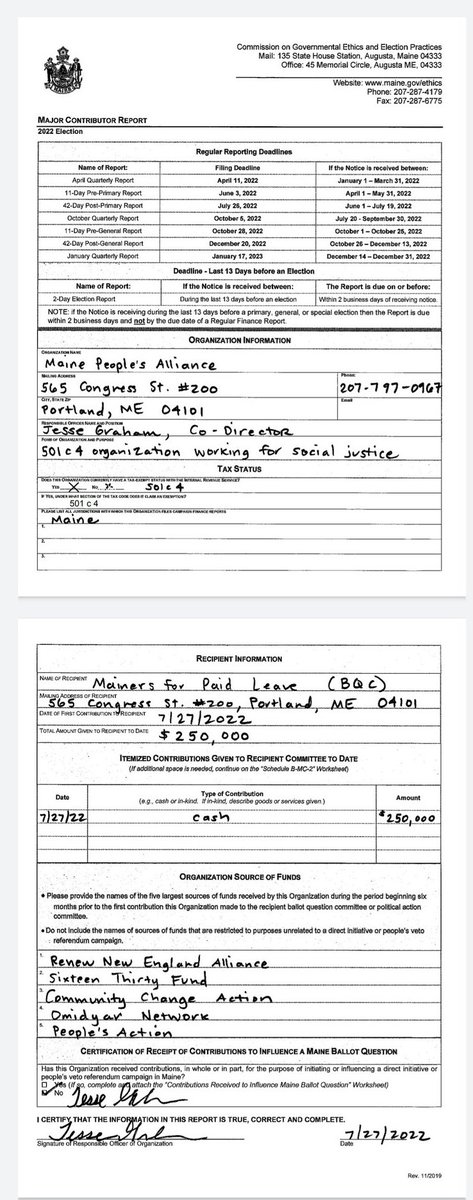 Commission on Governmental Ethics and Election Practices
Mail: 135 State House Station, Augusta, Maine 04333
Office: 45 Memorial Circle, Augusta ME, 04333
Website: www.maine.gov/ethics
Phone: 207-287-4179
Fax: 207-287-6775
MAJOR CONTRIBUTOR REPORT
2022 Election
Regular Reporting Deadlines
Name of Report: Filing Deadline If the Notice is received between:
April Quarterly Report April 11, 2022 January 1 – March 31, 2022
11-Day Pre-Primary Report June 3, 2022 April 1 – May 31, 2022
42-Day Post-Primary Report July 26, 2022 June 1 – July 19, 2022
October Quarterly Report October 5, 2022 July 20 - September 30, 2022
11-Day Pre-General Report October 28, 2022 October 1 – October 25, 2022
42-Day Post-General Report December 20, 2022 October 26 – December 13, 2022
January Quarterly Report January 17, 2023 December 14 – December 31, 2022
Deadline - Last 13 Days before an Election
Name of Report: If the Notice is received between: The Report is due on or before:
2-Day Election Report During the last 13 days before an election Within 2 business days of receiving notice.
NOTE: if the Notice is receiving during the last 13 days before a primary, general, or special election then the Report is due
within 2 business days and not by the due date of a Regular Finance Report.
ORGANIZATION INFORMATION
ORGANIZATION NAME
Maine People's Alliance
MAILING ADDRESS Phone:
565 Congress St. #200 207-797-0967
CITY, STATE ZIP Email
Portland, ME 04101
RESPONSIBLE OFFICER NAME AND POSITION
Jesse Graham, Co-Director
FORM OF ORGANIZATION AND PURPOSE
501c4 organization working for social justice
TAX STATUS
DOES THIS ORGANIZATION CURRENTLY HAVE A TAX-EXEMPT STATUS WITH THE INTERNAL REVENUE SERVICE?
Yes X No 501c4
IF YES, UNDER WHAT SECTION OF THE TAX CODE DOES IT CLAIM AN EXEMPTION?
501 c 4
PLEASE LIST ALL JURISDICTIONS WITH WHICH THIS ORGANIZATION FILES CAMPAIGN FINANCE REPORTS
1. Maine
2.
3.
RECIPIENT INFORMATION
NAME OF RECIPIENT Mainers for Paid Leave (BQC)
MAILING ADDRESS OF RECIPIENT
565 Congress St. #200, Portland, ME 04101
DATE OF FIRST CONTRIBUTION TO RECIPIENT 7/27/2022
TOTAL AMOUNT GIVEN TO RECIPIENT TO DATE $250,000
ITEMIZED CONTRIBUTIONS GIVEN TO RECIPIENT COMMITTEE TO DATE
(If additional space is needed, continue on the "Schedule B-MC-2" Worksheet)
Date Type of Contribution Amount
(e.g., cash or in-kind. If in-kind, describe goods or services given.)
7/27/22 cash $250,000
ORGANIZATION SOURCE OF FUNDS
• Please provide the names of the five largest sources of funds received by this Organization during the period beginning six
months prior to the first contribution this Organization made to the recipient ballot question committee or political action
committee.
• Do not include the names of sources of funds that are restricted to purposes unrelated to a direct initiative or people's veto
referendum campaign.
1. Renew New England Alliance
2. Sixteen Thirty Fund
3. Community Change Action
4. Omidyar Network
5. People's Action
CERTIFICATION OF RECEIPT OF CONTRIBUTIONS TO INFLUENCE A MAINE BALLOT QUESTION
Has this Organization received contributions, in whole or in part, for the purpose of initiating or influencing a direct initiative or
people's veto referendum campaign in Maine?
Yes (If so, complete and attach the "Contributions Received to Influence Maine Ballot Question" Worksheet)
No
I CERTIFY THAT THE INFORMATION IN THIS REPORT IS TRUE, CORRECT AND COMPLETE.
7/27/2022
Signature of Responsible Officer of Organization Date
Rev. 11/2019